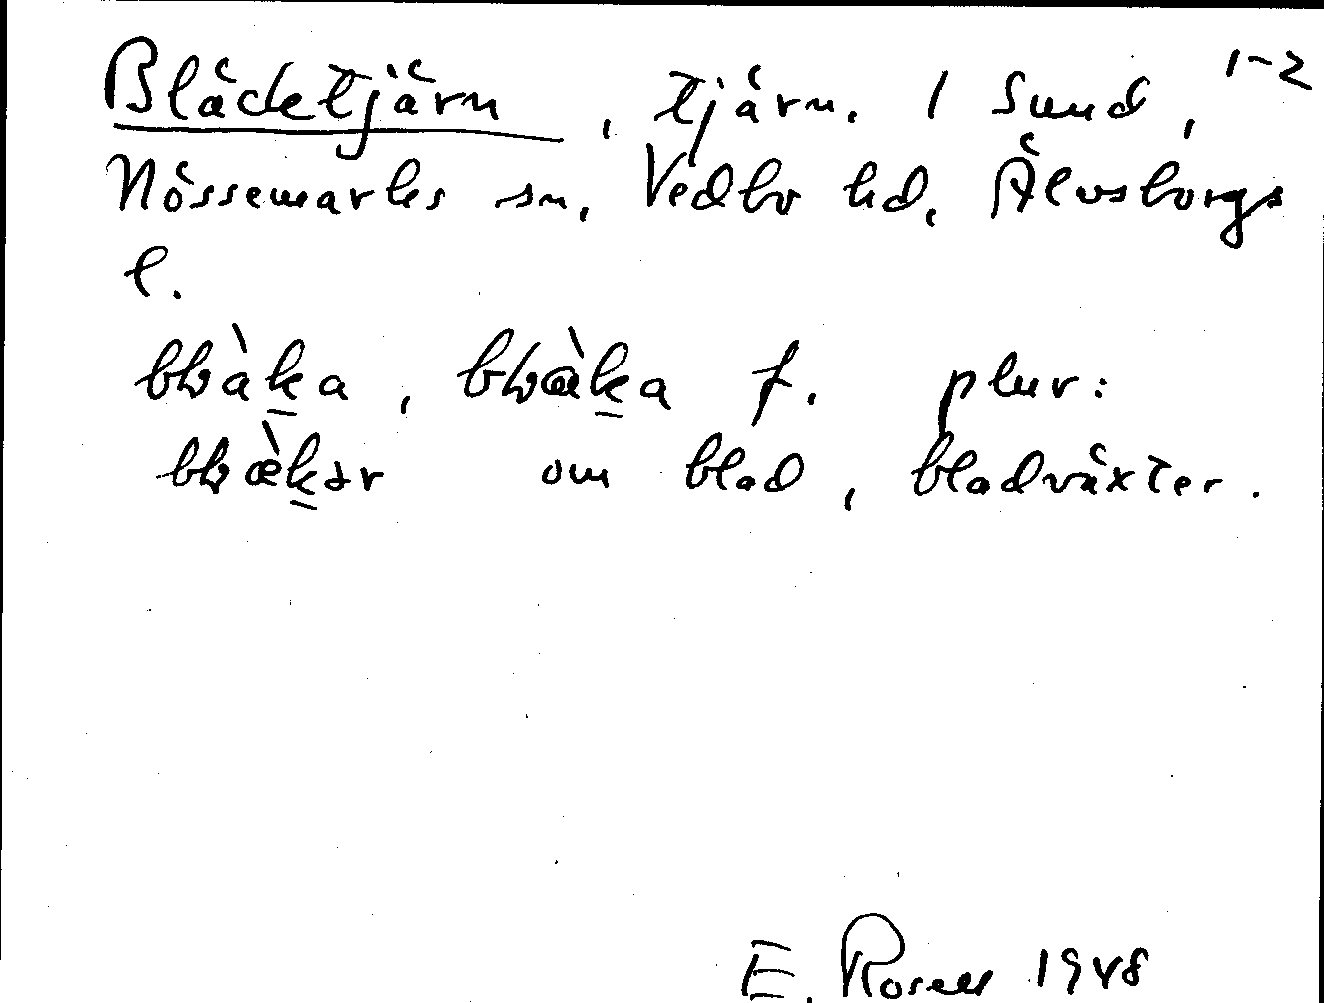 Bläcketjärn, tjärn. 1 Sund, 1-2
Nössemarks sn, Vedbo hd, Älvsborgs
l.
f. plur:
om blad, bladväxter.
E. Rosell 1948